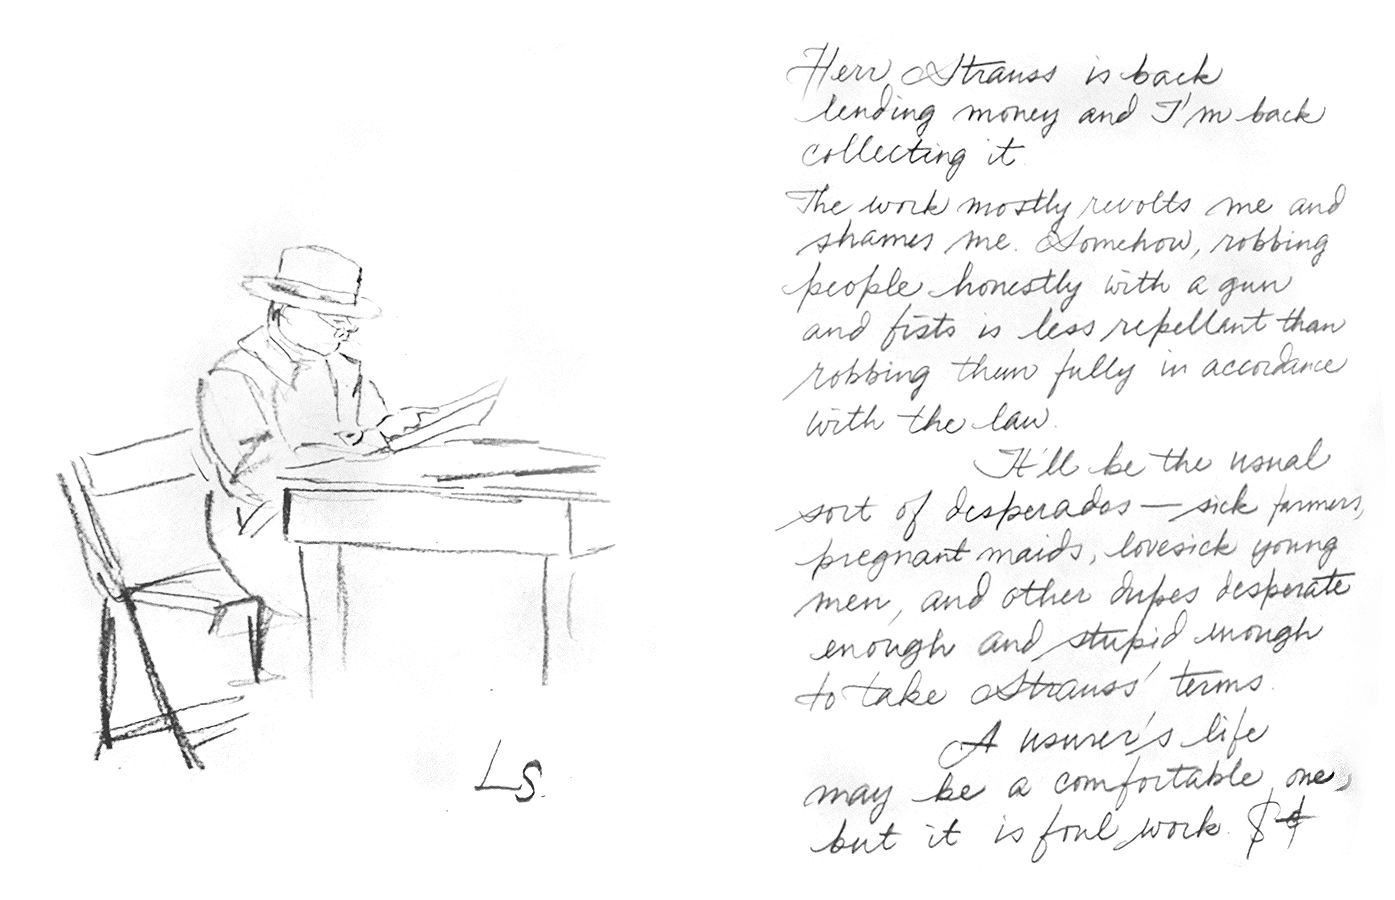 LS.
Herr Strauss is back
lending money and I'm back
collecting it.
The work mostly revolts me and
shames me. Somehow, robbing
people honestly with a gun
and fists is less repellant than
robbing them fully in accordance
with the law.
It'll be the usual
sort of desperados — sick farmers,
pregnant maids, lovesick young
men, and other dupes desperate
enough and stupid enough
to take Strauss' terms.
A usurer's life
may be a comfortable one,
but it is foul work. $¢